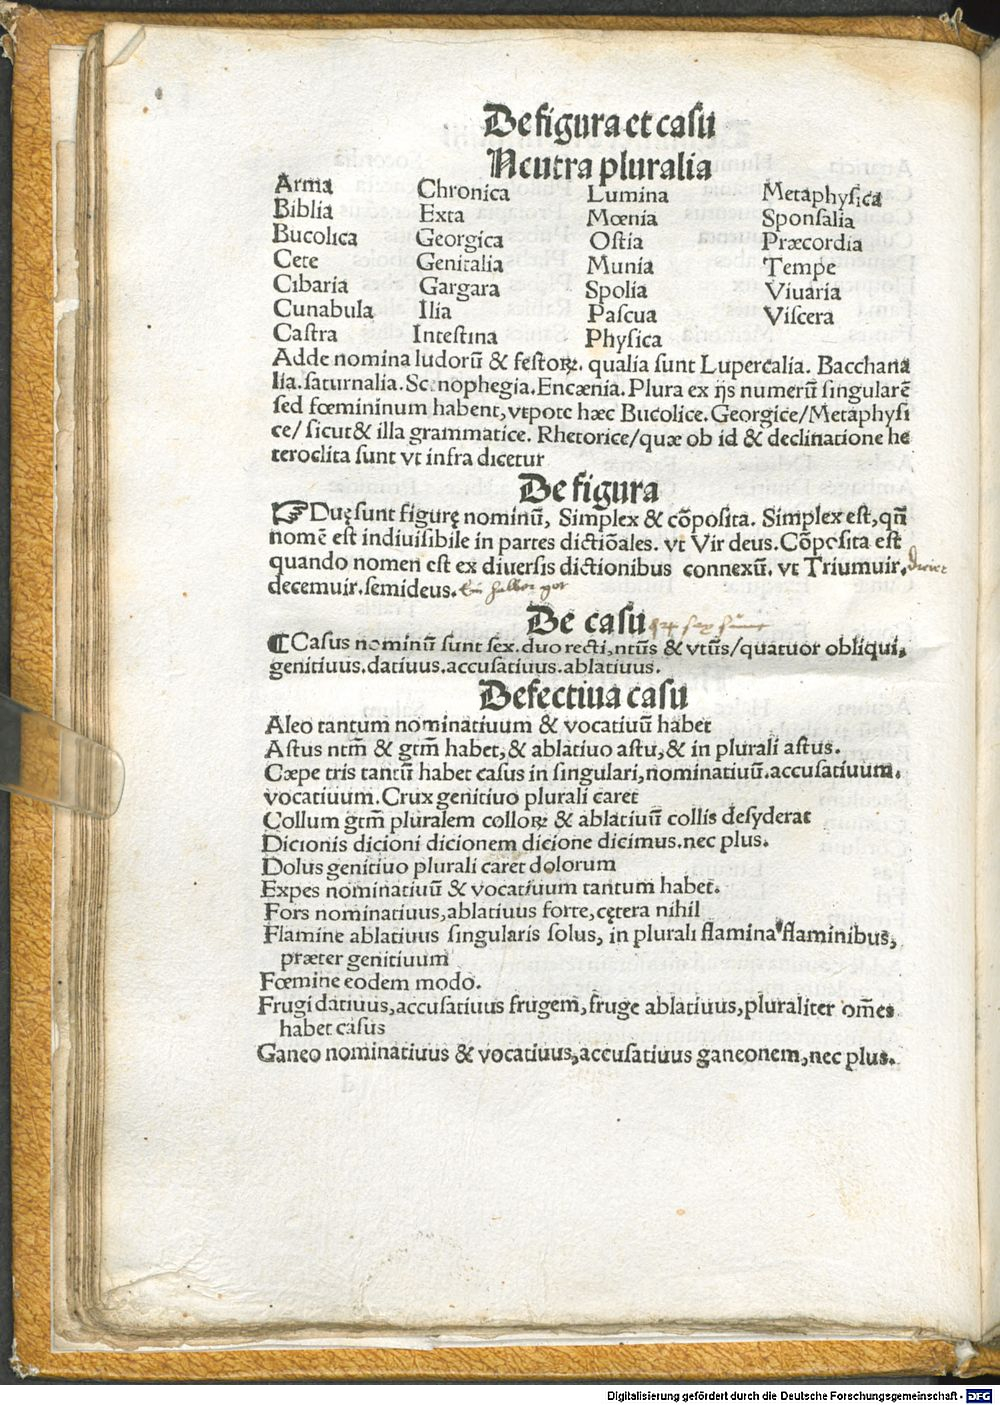 De figura et casu
Neutra pluralia
Arma Chronica Lumina Metaphysica
Biblia Exta Mœnia Sponsalia
Bucolica Georgica Ostia Præcordia
Cete Genitalia Munia Tempe
Cibaria Gargara Spolia Viuaria
Cunabula Ilia Pascua Viscera
Castra Intestina Physica
Adde nomina ludorū & festoꝝ. qualia sunt Lupercalia. Bacchana
lia. saturnalia. Scenophegia. Encænia. Plura ex ijs numerū singularē
sed fœmininum habent, vtpote hæc Bucolice. Georgice/Metaphysi
ce/ sicut & illa grammatice. Rhetorice/quæ ob id & declinatione he
teroclita sunt vt infra dicetur
De figura
☞ Duę sunt figurę nominū, Simplex & cōposita. Simplex est, qn̄
nomē est indiuisibile in partes dictiōales. vt Vir deus. Cōposita est
quando nomen est ex diuersis dictionibus connexū. vt Triumuir.
decemuir. semideus. Ein halber got
De casu
¶ Casus nominū sunt sex. duo recti, ntūs & vtūs/quatuor obliqui.
genitiuus. datiuus. accusatiuus. ablatiuus.
Defectiua casu
Aleo tantum nominatiuum & vocatiuū habet
Astus ntm̄ & gtm̄ habet, & ablatiuo astu, & in plurali astus.
Cæpe tris tantū habet casus in singulari, nominatiuū. accusatiuum.
vocatiuum. Crux genitiuo plurali caret
Collum gtm̄ pluralem colloꝝ & ablatiuū collis desyderat
Dicionis dicioni dicionem dicione dicimus. nec plus.
Dolus genitiuo plurali caret dolorum
Expes nominatiuū & vocatiuum tantum habet.
Fors nominatiuus, ablatiuus forte, cętera nihil
Flamine ablatiuus singularis solus, in plurali flamina flaminibus,
præter genitiuum
Fœmine eodem modo.
Frugi datiuus, accusatiuus frugem, fruge ablatiuus, pluraliter om̄es
habet casus
Ganeo nominatiuus & vocatiuus, accusatiuus ganeonem, nec plus.
Digitalisierung gefördert durch die Deutsche Forschungsgemeinschaft - DFG